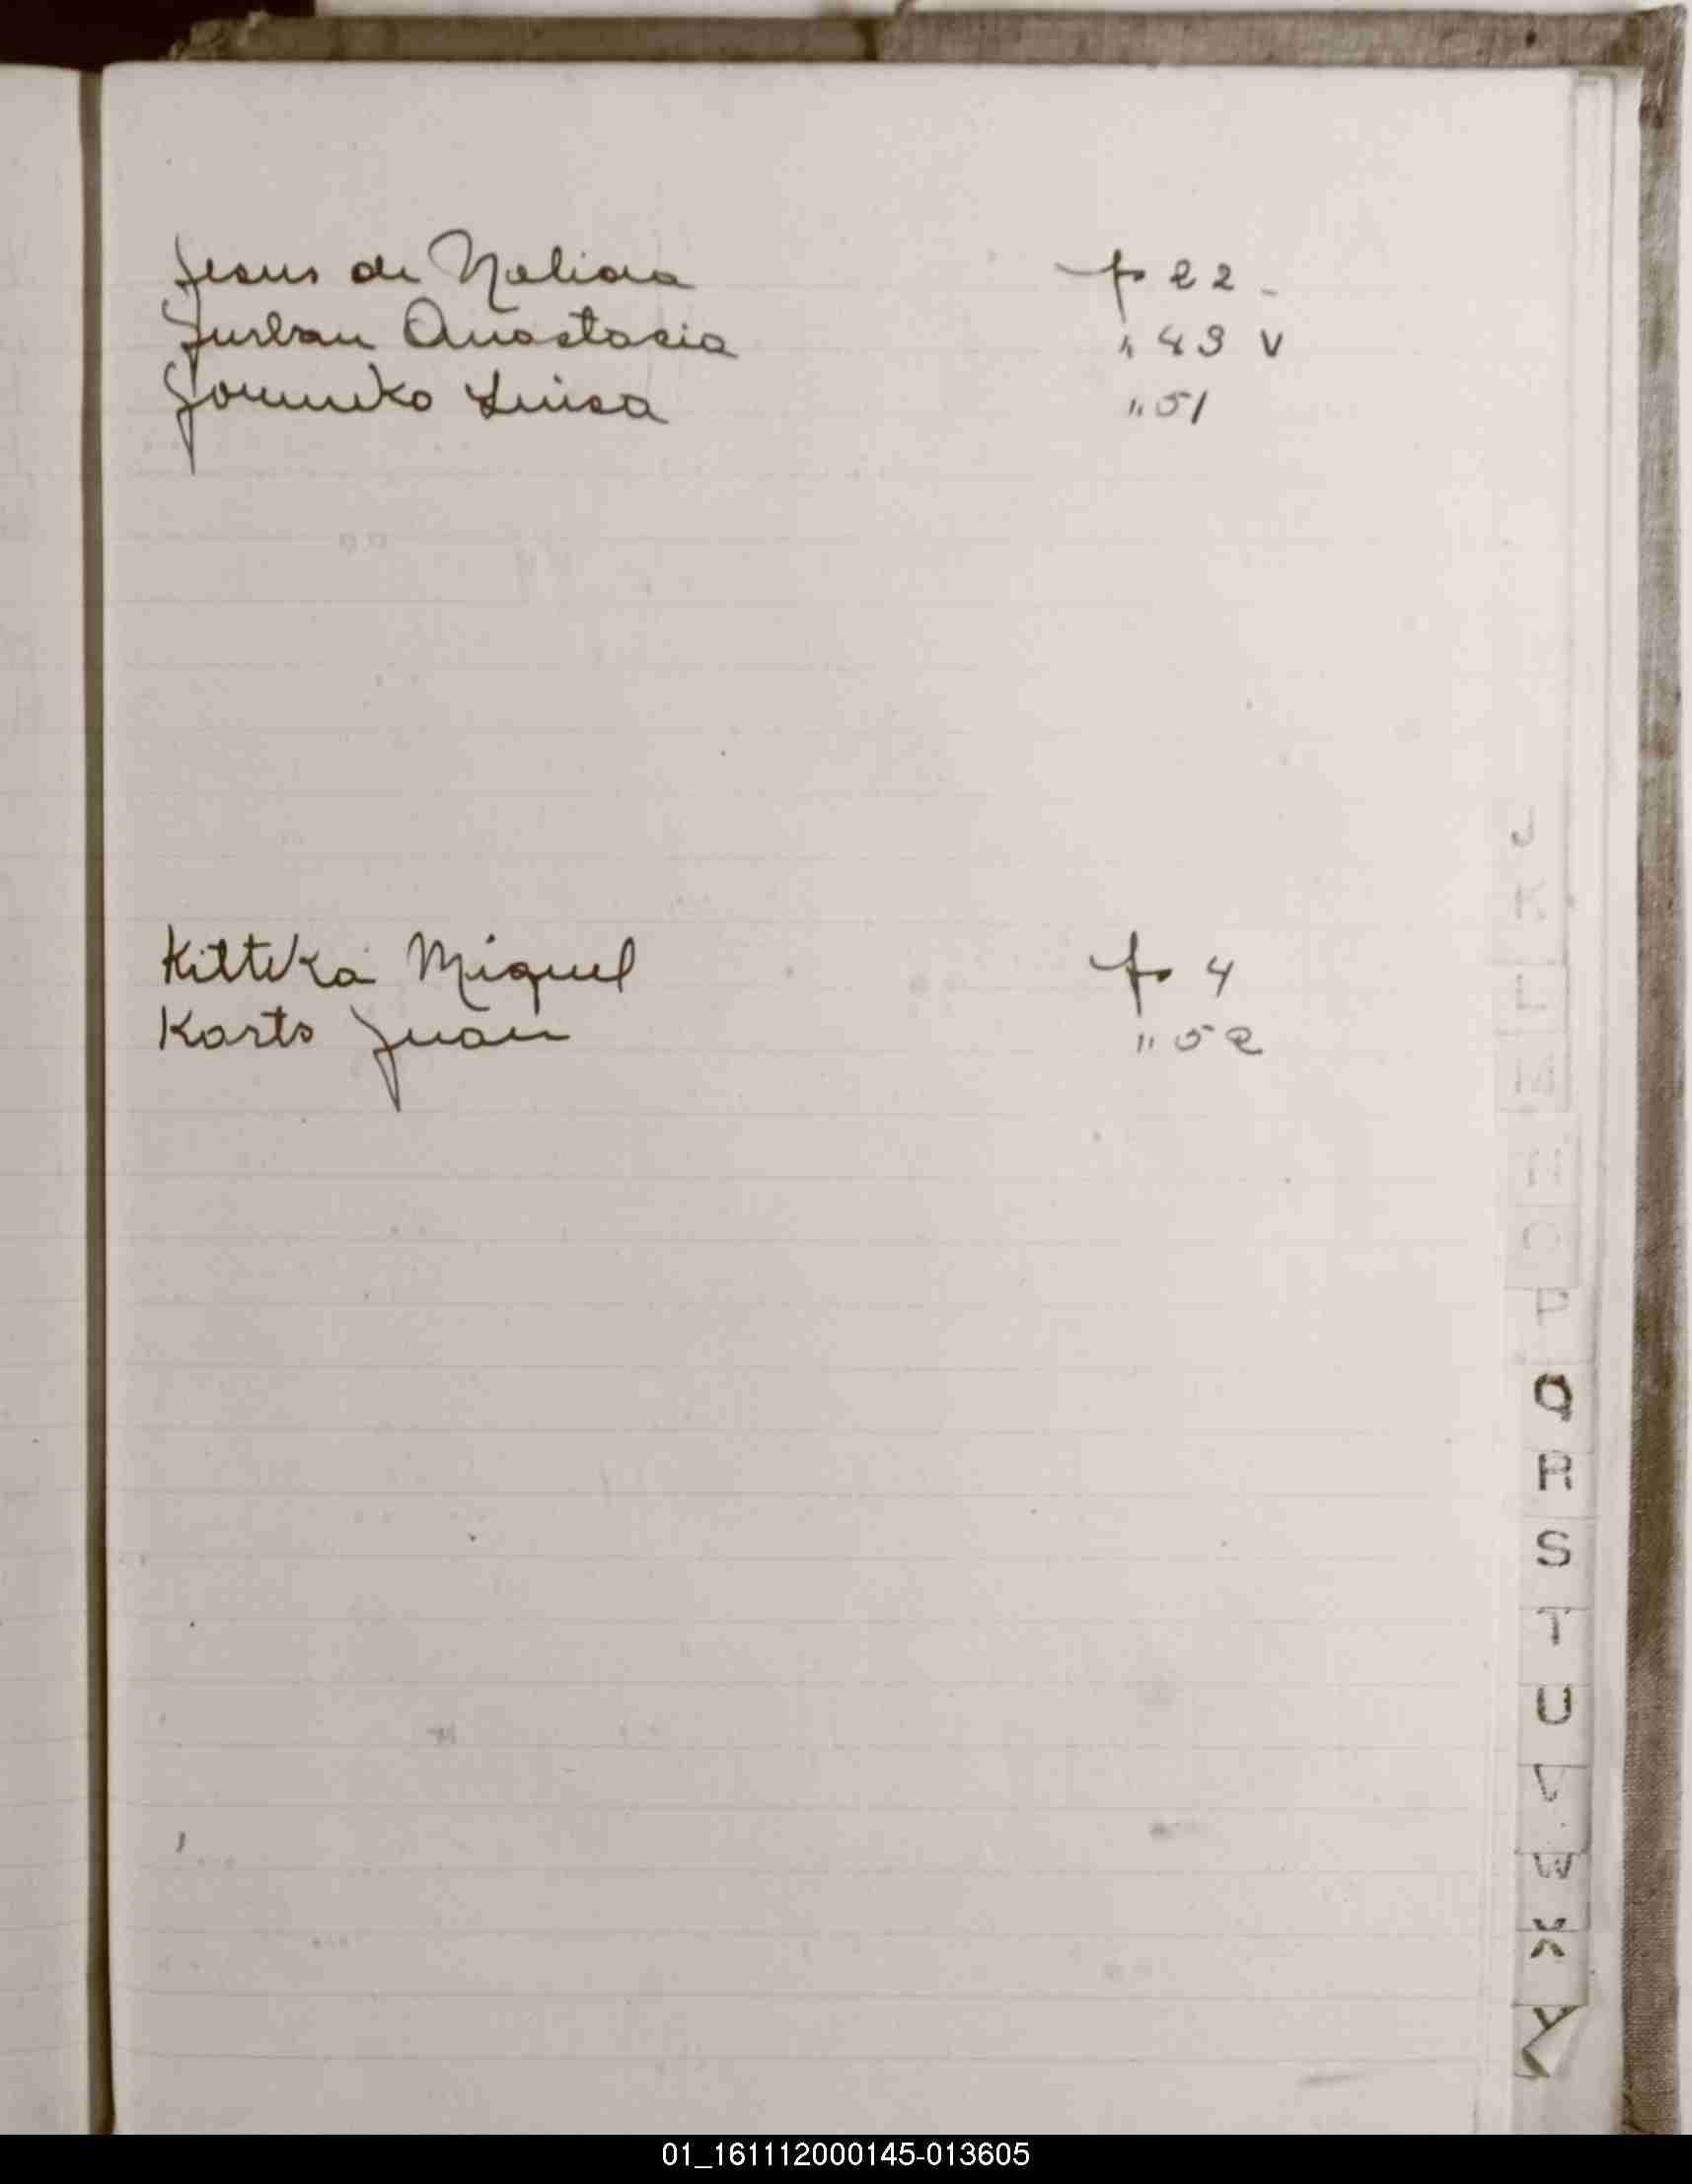 Jesus de Nelida fo 22 -
Jurban Anastacia " 43 v
Luisa " 51
Kittika Miguel fo 4
Korts Juan " 52
J
K
L
M
N
O
P
Q
R
S
T
U
V
W
X
Y
01_161112000145-013605